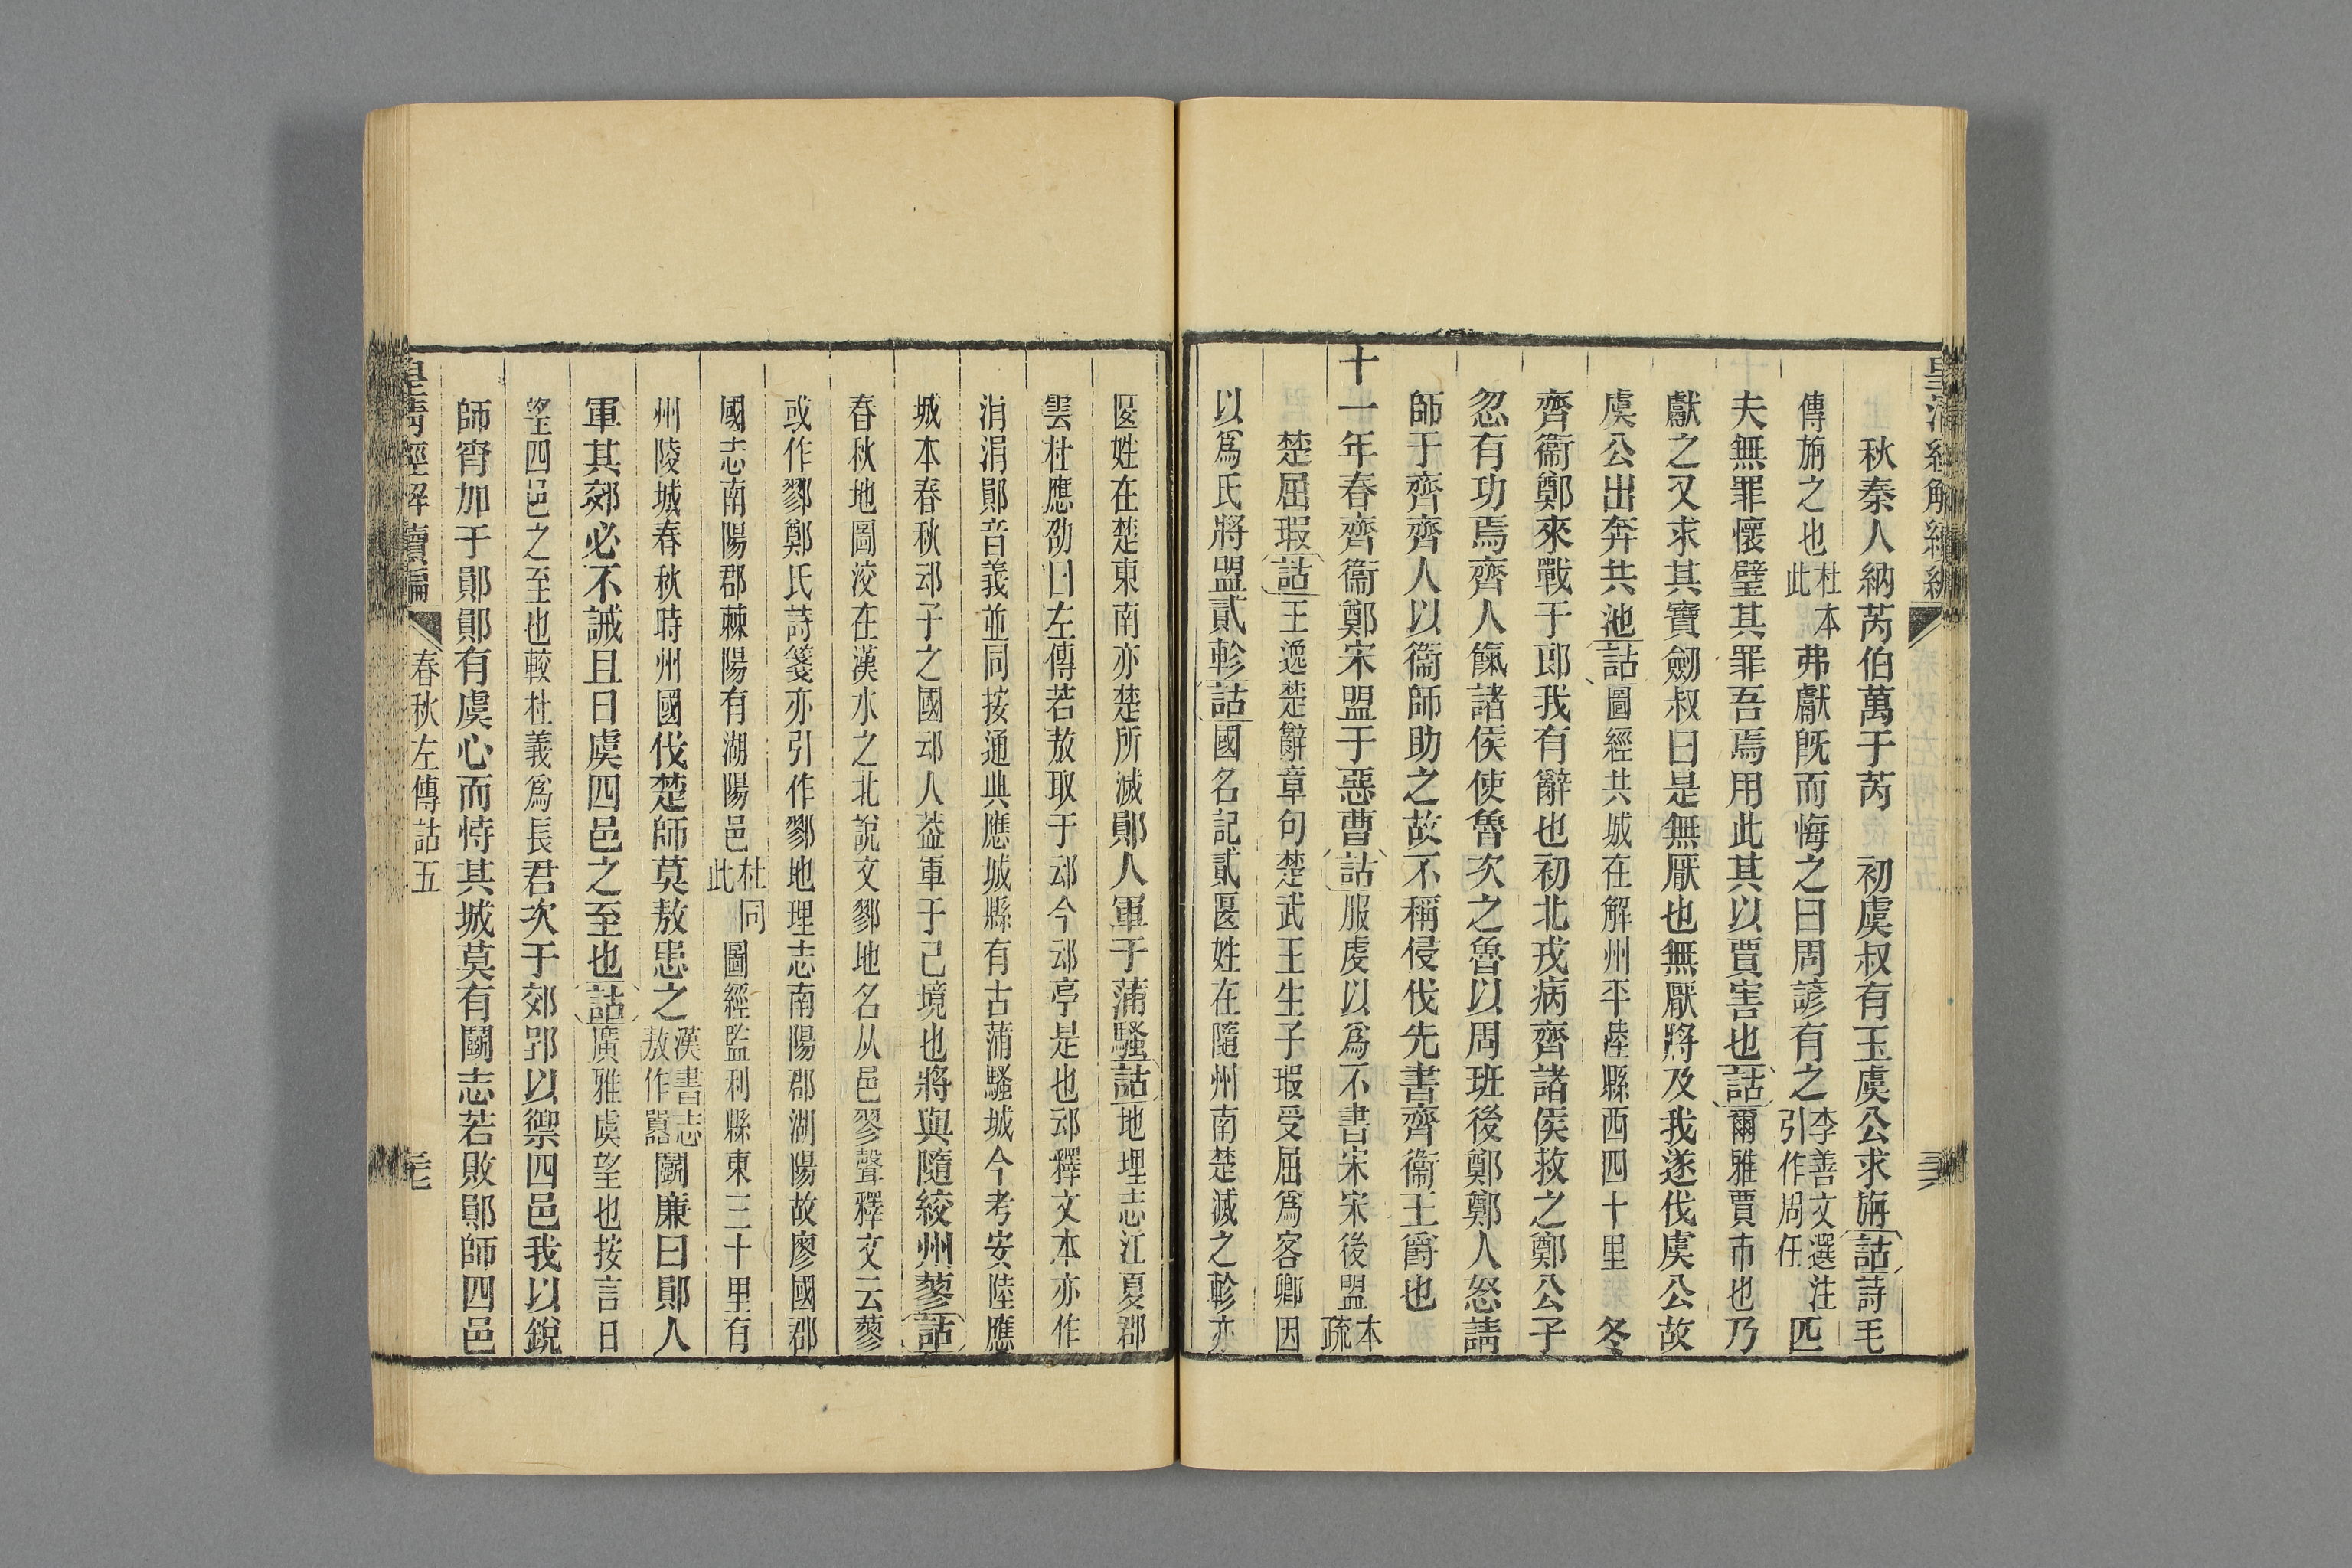 皇清經解續編
秋秦人納芮伯萬于芮　初虞叔有玉虞公求旃詁詩毛
傳旃之也杜本此弗獻旣而悔之曰周諺有之李善文選注引作周任匹
夫無罪懷璧其罪吾焉用此其以賈害也詁爾雅賈市也乃
獻之又求其寶劒叔曰是無厭也無厭將及我遂伐虞公故
虞公出奔共池詁圖經共城在解州平陸縣西四十里　冬
齊衞鄭來戰于郎我有辭也初北戎病齊諸侯救之鄭公子
忽有功焉齊人餼諸侯使魯次之魯以周班後鄭鄭人怒請
師于齊齊人以衞師助之故不稱侵伐先書齊衞王爵也
十一年春齊衞鄭宋盟于惡曹詁服虔以爲不書宋宋後盟本疏
楚屈瑕詁王逸楚辭章句楚武王生子瑕受屈爲客卿因
以爲氏將盟貳軫詁國名記貳匽姓在隨州南楚滅之軫亦
匽姓在楚東南亦楚所滅鄖人軍于蒲騷詁地理志江夏郡
雲杜應劭曰左傳若敖取于䢵今䢵亭是也䢵釋文本亦作
涓涓鄖音義並同按通典應城縣有古蒲騷城今考安陸應
城本春秋䢵子之國䢵人葢軍于己境也將與隨絞州蓼詁
春秋地圖洨在漢水之北說文鄝地名从邑翏聲釋文云蓼
或作鄝鄭氏詩箋亦引作鄝地理志南陽郡湖陽故廖國郡
國志南陽郡棘陽有湖陽邑杜同此圖經監利縣東三十里有
州陵城春秋時州國伐楚師莫敖患之漢書志敖作囂鬭廉曰鄖人
軍其郊必不誡且日虞四邑之至也詁廣雅虞望也按言日
望四邑之至也較杜義爲長君次于郊郢以禦四邑我以銳
師宵加于鄖鄖有虞心而恃其城莫有鬭志若敗鄖師四邑
皇清經解續編　春秋左傳詁五